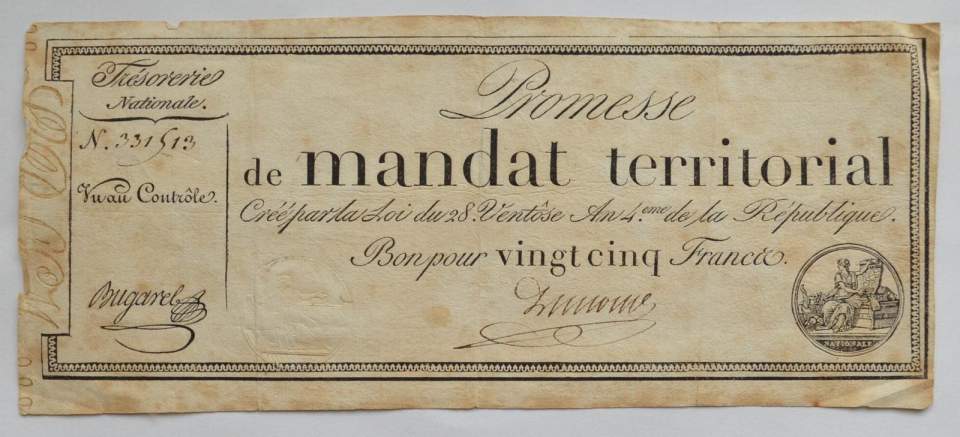 Trésorerie
Nationale.
N. 331513
Vu au Contrôle.
Bugarel
Promesse
de mandat territorial
Créé par la Loi du 28 Ventôse An 4.eme de la République.
Bon pour vingt cinq Francs.
NATIONALE